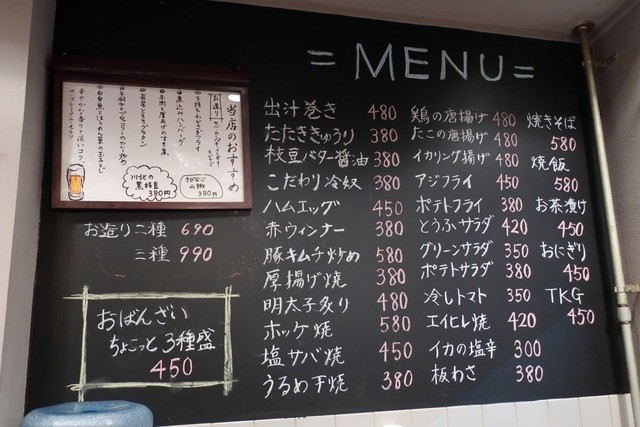 = MENU =
出汁巻き 480
たたききゅうり 380
枝豆バター醤油 380
こだわり冷奴 380
ハムエッグ 450
赤ウィンナー 380
豚キムチ炒め 580
厚揚げ焼 380
明太子炙り 480
ホッケ焼 580
塩サバ焼 450
うるめ干焼 380
鶏の唐揚げ 480
たこの唐揚げ 480
イカリング揚げ 480
アジフライ 450
ポテトフライ 380
とうふサラダ 420
グリーンサラダ 350
ポテサラダ 380
冷しトマト 350
エイヒレ焼 420
イカの塩辛 300
板わさ 380
焼きそば
580
焼飯
580
お茶漬け
450
おにぎり
450
TKG
450
当店のおすすめ
お造り
380円
380円
お造り二種 690
三種 990
おばんざい
ちょこっと3種盛
450